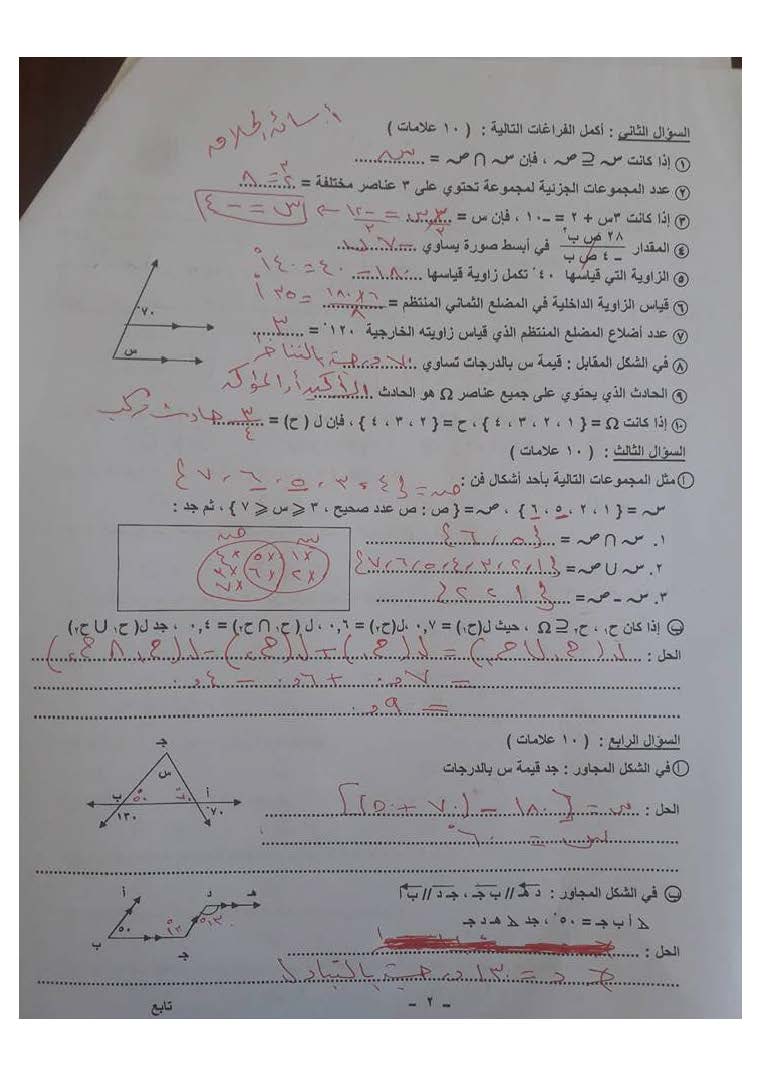 السؤال الثاني : أكمل الفراغات التالية : ( ١٠ علامات )
١ إذا كانت س ⊆ ص ، فإن س ∩ ص = س
٢ عدد المجموعات الجزئية لمجموعة تحتوي على ٣ عناصر مختلفة = ٢^٣ = ٨
٣ إذا كانت ٣س + ٢ = -١٠ ، فإن س = ٣س/٣ = -١٢/٣ ← س = -٤
٤ المقدار ٢٨ ص ب٢ / -٤ ص ب في أبسط صورة يساوي -٧ ب
٥ الزاوية التي قياسها ٤٠° تكمل زاوية قياسها ١٨٠ - ٤٠ = ١٤٠°
٦ قياس الزاوية الداخلية في المضلع الثماني المنتظم = ٦×١٨٠ / ٨ = ١٣٥°
٧ عدد أضلاع المضلع المنتظم الذي قياس زاويته الخارجية ١٢٠° = ٣
٨ في الشكل المقابل : قيمة س بالدرجات تساوي ٧٠ درجة بالتناظر
٧٠°
س
٩ الحادث الذي يحتوي على جميع عناصر Ω هو الحادث الأكيد أو المؤكد
١٠ إذا كانت Ω = { ١ ، ٢ ، ٣ ، ٤ } ، ح = { ٢ ، ٣ ، ٤ } ، فإن ل ( ح ) = ٣/٤ حادث مركب
السؤال الثالث : ( ١٠ علامات )
أ مثل المجموعات التالية بأحد أشكال فن : ص = { ٤ ، ٣ ، ٥ ، ٦ ، ٧ }
س = { ١ ، ٢ ، ٥ ، ٦ } ، ص = { ص : ص عدد صحيح ، ٣ ⩽ س ⩽ ٧ } ، ثم جد :
١. س ∩ ص = { ٥ ، ٦ }
٢. س ∪ ص = { ١ ، ٢ ، ٣ ، ٤ ، ٥ ، ٦ ، ٧ }
٣. س - ص = { ١ ، ٢ }
س ص
١× ٥× ٤×
٢× ٦× ٣×
٧×
ب إذا كان ح١ ، ح٢ ⊆ Ω ، حيث ل(ح١) = ٠,٧ ، ل(ح٢) = ٠,٦ ، ل ( ح١ ∩ ح٢) = ٠,٤ ، جد ل( ح١ ∪ ح٢)
الحل : ل(ح١ ∪ ح٢) = ل(ح١) + ل(ح٢) - ل(ح١ ∩ ح٢)
= ٠,٧ + ٠,٦ - ٠,٤
= ٠,٩
السؤال الرابع : ( ١٠ علامات )
أ في الشكل المجاور : جد قيمة س بالدرجات
الحل : س = [ ١٨٠ - (٧٠ + ٥٠) ]
س = ٦٠°
جـ
س
أ
ب
٧٠°
٥٠°
٧٠°
١٣٠°
ب في الشكل المجاور : د هـ // ب جـ ، جـ د // ب أ
∠ أ ب جـ = ٥٠° ، جد ∠ هـ د جـ
الحل :
د = ١٣٠ درجة بالتبادل
أ
د
هـ
٥٠°
١٣٠°
١٣٠°
ب
جـ
- ٢ -
تابع